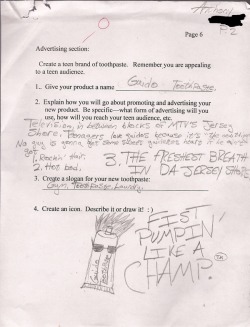 Anthony
P.2
Page 6
Advertising section:
Create a teen brand of toothpaste. Remember you are appealing
to a teen audience.
1. Give your product a name Guido Toothpaste
2. Explain how you will go about promoting and advertising your
new product. Be specific—what form of advertising will you
use, how will you reach your teen audience, etc.
Television, in between blocks of MTV's Jersey
Shore. Teenagers love guidos because it's
No guy is gonna get some street guidettes
1. Rockin' Hair.
2. Hot bod,
3. THE FRESHEST BREATH
IN DA JERSEY SHORE
3. Create a slogan for your new toothpaste:
Gym, Toothpaste, Laundry
4. Create an icon. Describe it or draw it! :)
Guido
Toothpaste
FIST
PUMPIN'
LIKE A
CHAMP.
TM